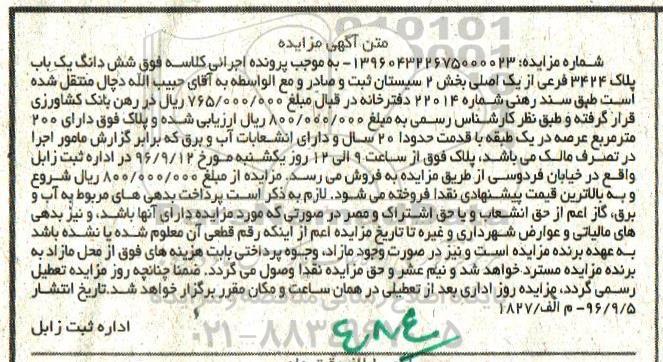 متن آگهی مزایده
شماره مزایده: ۱۳۹۶۰۴۳۲۲۶۷۵۰۰۰۰۲۳- به موجب پرونده اجرائی کلاسه فوق شش دانگ یک باب
پلاک ۳۴۲۴ فرعی از یک اصلی بخش ۲ سیستان ثبت و صادر و مع الواسطه به آقای حبیب الله دچال منتقل شده
است طبق سند رهنی شماره ۲۲۰۱۴ دفترخانه در قبال مبلغ ۷۶۵/۰۰۰/۰۰۰ ریال در رهن بانک کشاورزی
قرار گرفته و طبق نظر کارشناس رسمی به مبلغ ۸۰۰/۰۰۰/۰۰۰ ریال ارزیابی شده و پلاک فوق دارای ۲۰۰
مترمربع عرصه در یک طبقه با قدمت حدودا ۲۰ سال و دارای انشعابات آب و برق که برابر گزارش مامور اجرا
در تصرف مالک می باشد، پلاک فوق از ساعت ۹ الی ۱۲ روز یکشنبه مورخ ۹۶/۹/۱۲ در اداره ثبت زابل
واقع در خیابان فردوسی از طریق مزایده به فروش می رسد. مزایده از مبلغ ۸۰۰/۰۰۰/۰۰۰ ریال شروع
و به بالاترین قیمت پیشنهادی نقدا فروخته می شود. لازم به ذکر است پرداخت بدهی های مربوط به آب و
برق، گاز اعم از حق انشعاب و یا حق اشتراک و مصر در صورتی که مورد مزایده دارای آنها باشد، و نیز بدهی
های مالیاتی و عوارض شهرداری و غیره تا تاریخ مزایده اعم از اینکه رقم قطعی آن معلوم شده یا نشده باشد
به عهده برنده مزایده است و نیز در صورت وجود مازاد، وجوه پرداختی بابت هزینه های فوق از محل مازاد به
برنده مزایده مسترد خواهد شد و نیم عشر و حق مزایده نقدا وصول می گردد. ضمنا چنانچه روز مزایده تعطیل
رسمی گردد، مزایده روز اداری بعد از تعطیلی در همان ساعت و مکان مقرر برگزار خواهد شد.تاریخ انتشار
۹۶/۹/۵- م الف/۱۸۲۷
اداره ثبت زابل
۰۲۱-۸۸۳۴۹۶۷۰-۵